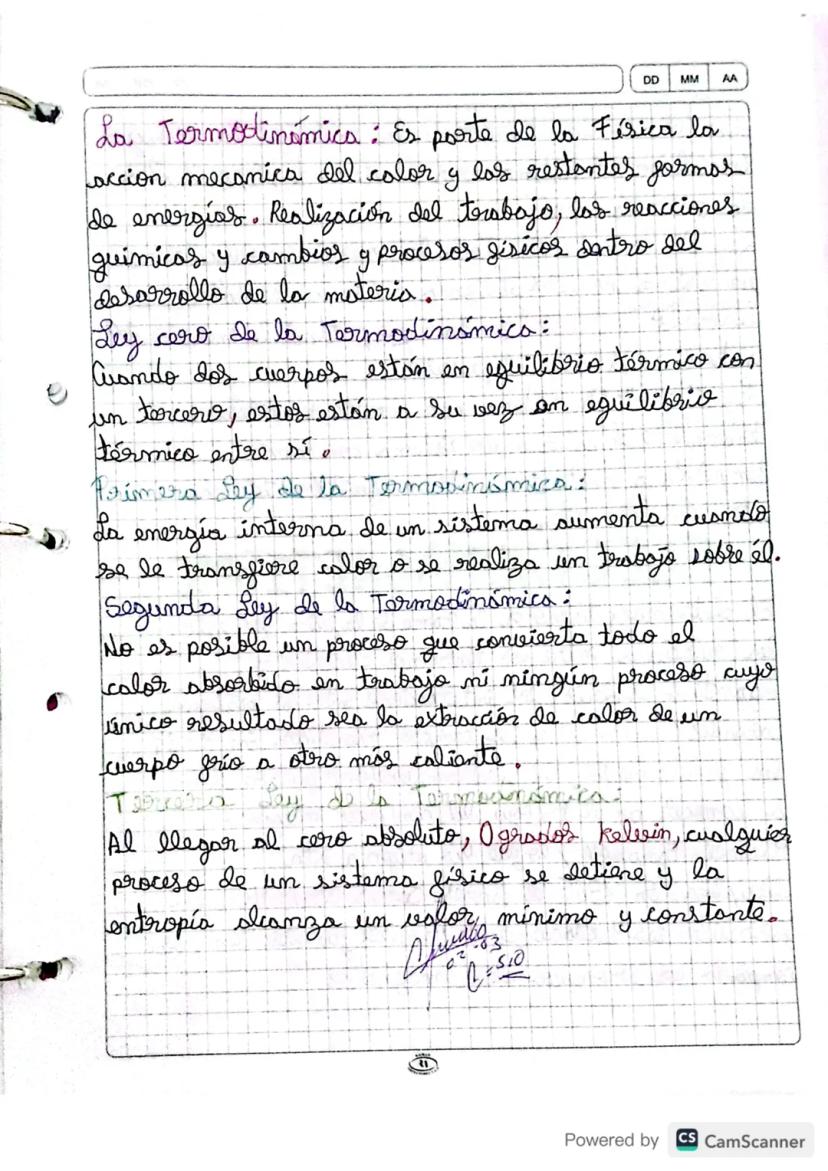 DD MM AA
La Termodinámica: Es parte de la Física la
accion mecanica del calor y las restantes formas
de energías. Realización del trabajo, las reacciones
químicas y cambios y procesos físicos dentro del
desarrollo de la materia.
Ley cero de la Termodinámica:
Cuando dos cuerpos están en equilibrio térmico con
un tercero, estos están a su vez en equilibrio
térmico entre sí.
Primera Ley de la Termodinámica:
La energía interna de un sistema aumenta cuando
se le transfiere calor o se realiza un trabajo sobre él.
Segunda Ley de la Termodinámica:
No es posible un proceso que convierta todo el
calor absorbido en trabajo ni ningún proceso cuyo
único resultado sea la extracción de calor de un
cuerpo frío a otro más caliente.
Tercera Ley de la Termodinámica:
Al llegar al cero absoluto, 0 grados Kelvin, cualquier
proceso de un sistema físico se detiene y la
entropía alcanza un valor mínimo y constante.
Powered by CS CamScanner